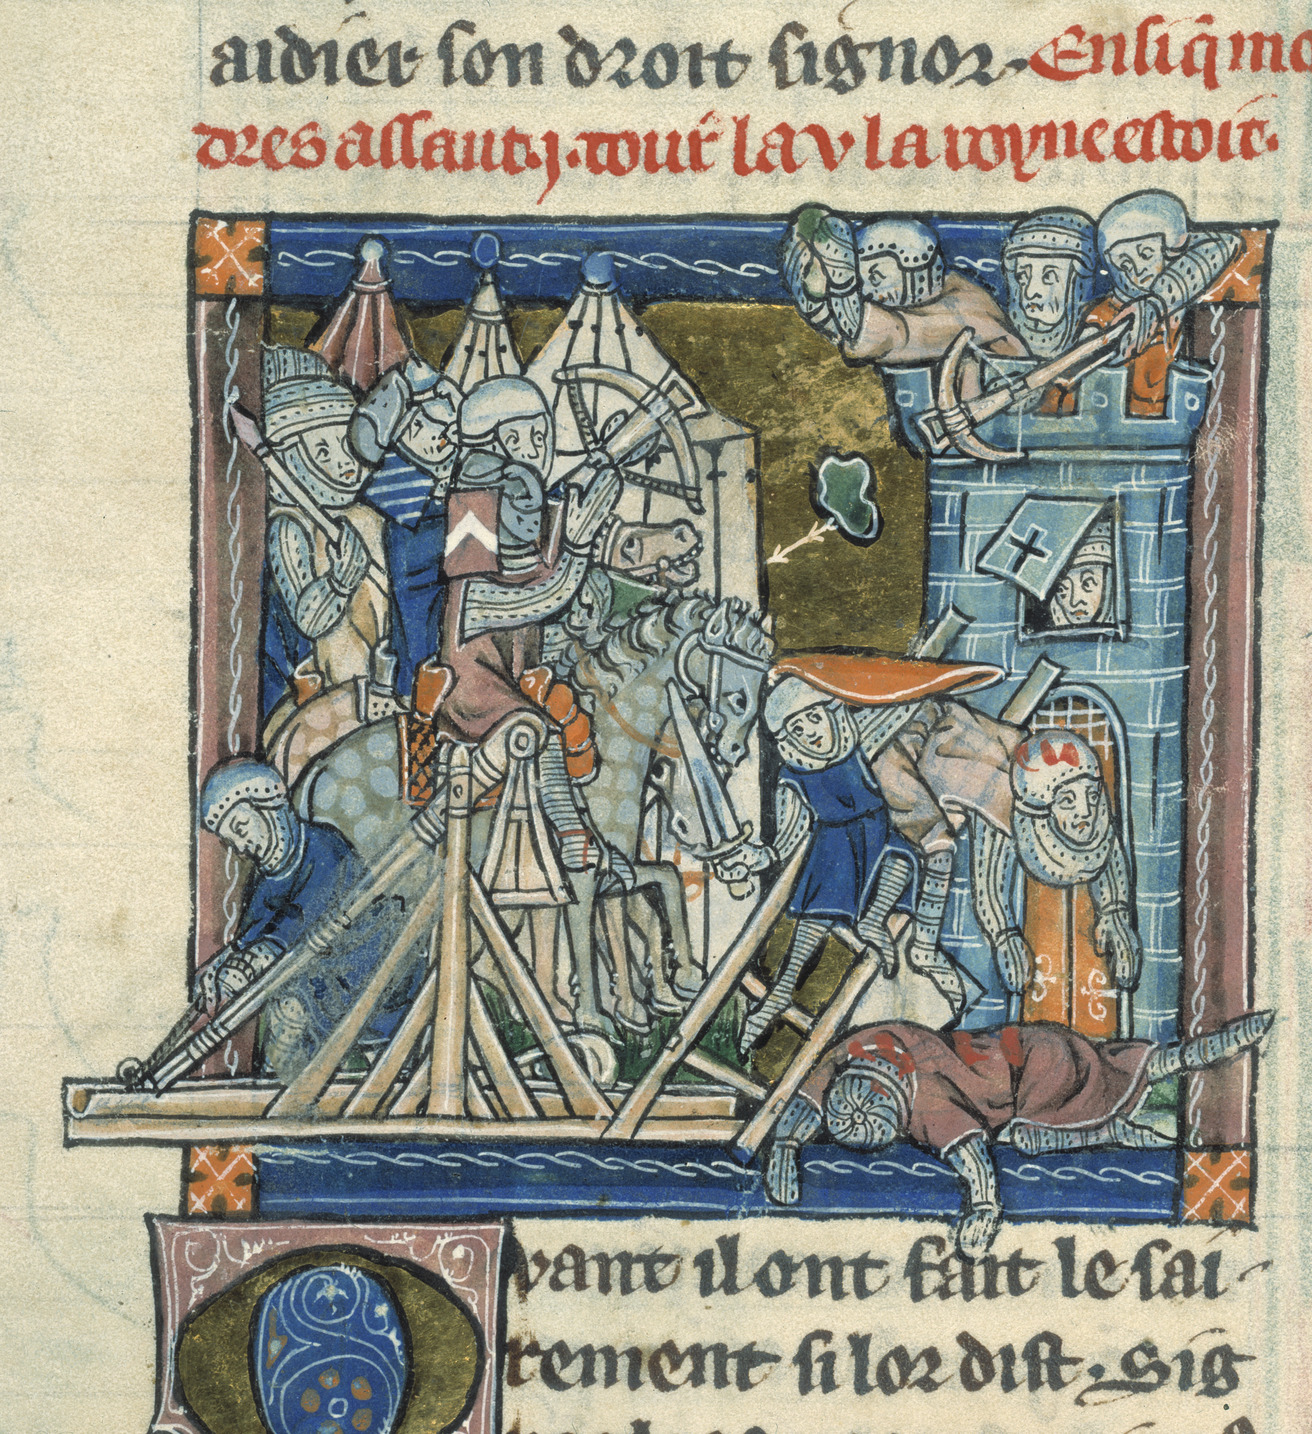 aidier son droit signor. Ensi q̄ mo
dres assaut .j. tour la v la royne estoit.
Qvant il ont fait le sai-
rement si lor dist. Sig